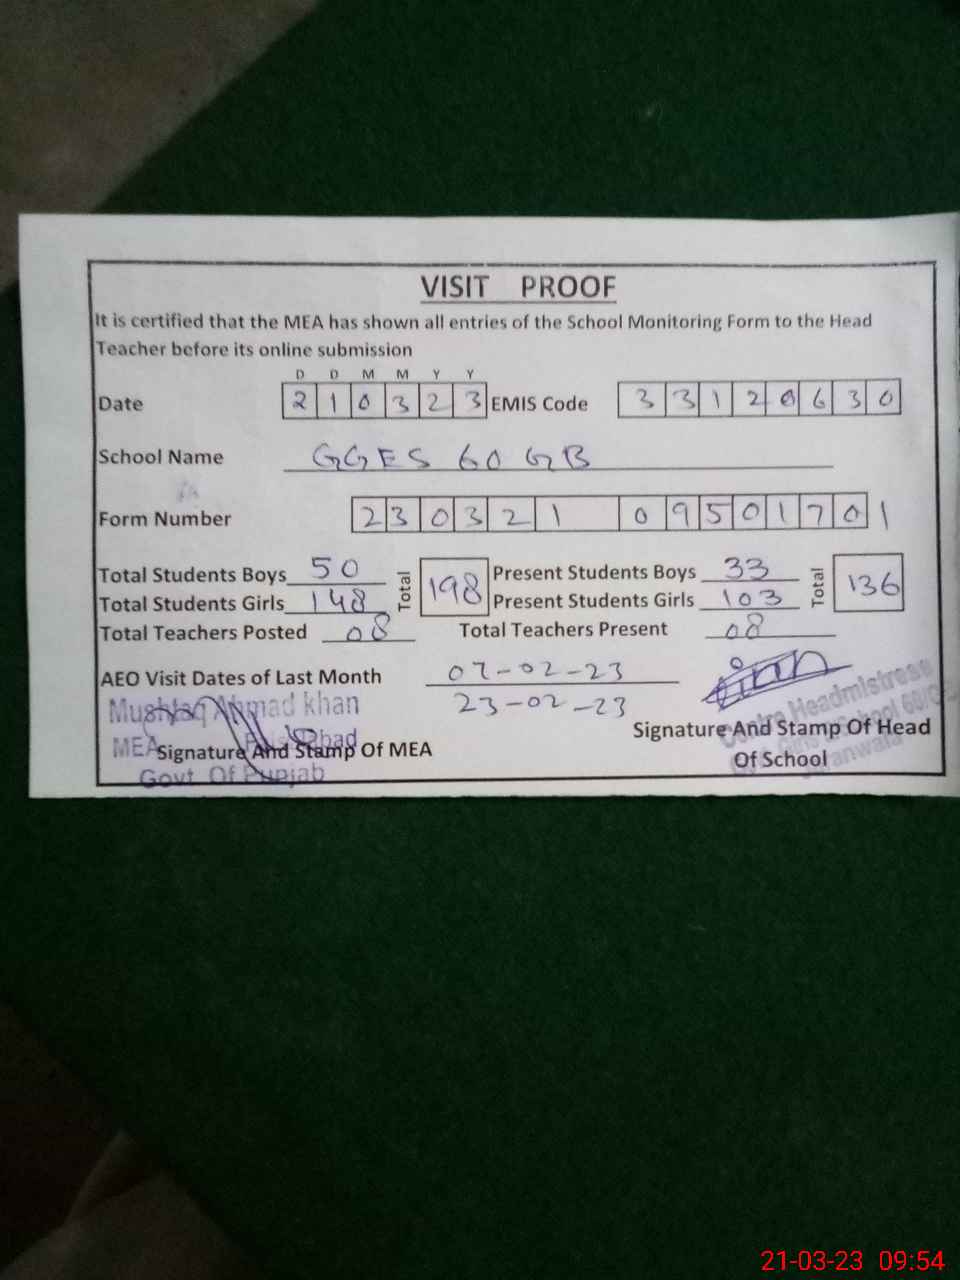 VISIT PROOF
It is certified that the MEA has shown all entries of the School Monitoring Form to the Head
Teacher before its online submission
D D M M Y Y
Date 2 1 0 3 2 3 EMIS Code 3 3 1 2 0 6 3 0
School Name GGES 60 GB
Form Number 2 3 0 3 2 1 0 9 5 0 1 7 0 1
Total Students Boys 50 Total 198 Present Students Boys 33 Total 136
Total Students Girls 148 Present Students Girls 103
Total Teachers Posted 08 Total Teachers Present 08
AEO Visit Dates of Last Month 07-02-23
23-02-23
Mushtaq Ahmad khan
MEA
Signature And Stamp Of MEA
Govt. Of Punjab
Centre Headmistress
Signature And Stamp Of Head
Of School
21-03-23 09:54